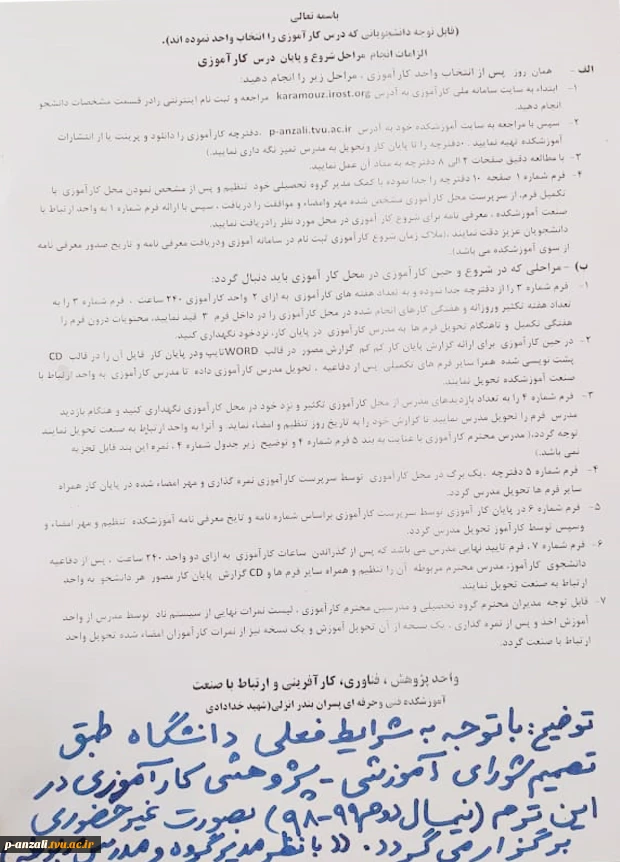 باسمه تعالی
(قابل توجه دانشجویانی که درس کارآموزی را انتخاب واحد نموده اند).
الزامات انجام مراحل شروع و پایان درس کارآموزی
الف - همان روز پس از انتخاب واحد کارآموزی ، مراحل زیر را انجام دهید:
۱- ابتداء به سایت سامانه ملی کارآموزی به آدرس karamouz.irost.org مراجعه و ثبت نام اینترنتی رادر قسمت مشخصات دانشجو
انجام دهید.
۲- سپس با مراجعه به سایت آموزشکده خود به آدرس p-anzali.tvu.ac.ir ،دفترچه کارآموزی را دانلود و پرینت یا از انتشارات
آموزشکده تهیه نمایید . -دفترچه را تا پایان کار وتحویل به مدرس تمیز نگه داری نمایید.)
۳- با مطالعه دقیق صفحات ۲ الی ۸ دفترچه به مفاد آن عمل نمایید.
۴- فرم شماره ۱ صفحه ۱۰ دفترچه را جدا نموده با کمک مدیر گروه تحصیلی خود تنظیم و پس از مشخص نمودن محل کارآموزی با
تکمیل فرم، از سرپرست محل کارآموزی مشخص شده مهر وامضاء و موافقت را دریافت ، سپس با ارائه فرم شماره ۱ به واحد ارتباط با
صنعت آموزشکده ، معرفی نامه برای شروع کار آموزی در محل مورد نظر رادریافت نمایید.
دانشجویان عزیز دقت نمایند ،(ملاک زمان شروع کارآموزی ثبت نام در سامانه آموزی ودریافت معرفی نامه و تاریخ صدور معرفی نامه
از سوی آموزشکده می باشد.)
ب) - مراحلی که در شروع و حین کارآموزی در محل کار آموزی باید دنبال گردد:
۱- فرم شماره ۳ را از دفترچه جدا نموده و به تعداد هفته های کارآموزی به ازای ۲ واحد کارآموزی ۲۴۰ ساعت ، فرم شماره ۳ را به
تعداد هفته تکثیر وروزانه و هفتگی کارهای انجام شده در محل کارآموزی را در داخل فرم ۳ قید نمایید، محتویات درون فرم را
هفتگی تکمیل و تاهنگام تحویل فرم ها به مدرس کارآموزی در پایان کار، نزدخود نگهداری کنید.
۲- در حین کارآموزی برای ارائه گزارش پایان کار کم کم گزارش مصور در قالب WORD تایپ ودر پایان کار فایل آن را در قالب CD
پشت نویسی شده همرا سایر فرم های تکمیلی پس از دفاعیه ، تحویل مدرس کارآموزی داده تا مدرس کارآموزی به واحد ارتباط با
صنعت آموزشکده تحویل نمایند.
۳- فرم شماره ۴ را به تعداد بازدیدهای مدرس از محل کارآموزی تکثیر و نزد خود در محل کارآموزی نگهداری کنید و هنگام بازدید
مدرس فرم را تحویل مدرس نمایید تا گزارش خود را به تاریخ روز تنظیم و امضاء نماید. و آنرا به واحد ارتباط به صنعت تحویل نمایند
توجه گردد،(مدرس محترم کارآموزی با عنایت به بند ۵ فرم شماره ۴ و توضیح زیر جدول شماره ۴ ، نمره این بند قابل تجزیه
نمی باشد.)
۴- فرم شماره ۵ دفترچه ،یک برگ در محل کارآموزی توسط سرپرست کارآموزی نمره گذاری و مهر امضاء شده در پایان کار همراه
سایر فرم ها تحویل مدرس گردد.
۵- فرم شماره ۶ در پایان کار آموزی توسط سرپرست کارآموزی براساس شماره نامه و تایخ معرفی نامه آموزشکده تنظیم و مهر امضاء و
وسپس توسط کارآموز تحویل مدرس گردد.
۶- فرم شماره ۷ ، فرم تایید نهایی مدرس می باشد که پس از گذراندن ساعات کارآموزی به ازای دو واحد ۲۴۰ ساعت ، پس از دفاعیه
دانشجوی کارآموز، مدرس محترم مربوطه آن را تنظیم و همراه سایر فرم ها و CD گزارش پایان کار مصور هر دانشجو به واحد
ارتباط به صنعت تحویل نمایند.
۷- قابل توجه مدیران محترم گروه تحصیلی و مدرسین محترم کارآموزی ، لیست نمرات نهایی از سیستم ناد توسط مدرس از واحد
آموزش اخذ و پس از نمره گذاری ، یک نسخه از آن تحویل آموزش و یک نسخه نیز از نمرات کارآموزان امضاء شده تحویل واحد
ارتباط با صنعت گردد.
واحد پژوهش ، فناوری، کارآفرینی و ارتباط با صنعت
آموزشکده فنی وحرفه ای پسران بندر انزلی(شهید خدادادی
توضیح: با توجه به شرایط فعلی دانشگاه طبق
تصمیم شورای آموزشی - پژوهشی کارآموزی در
این ترم (نیمسال دوم ۹۹-۹۸) بصورت غیرحضوری
برگزار می گردد. (( با نظر مدیر گروه و مدرس
p-anzali.tvu.ac.ir